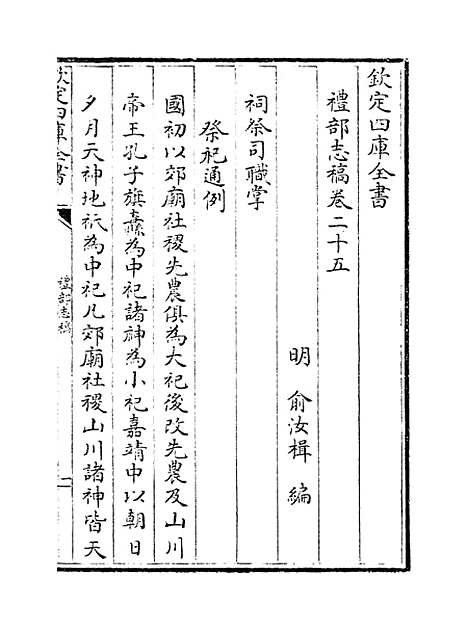 欽定四庫全書
禮部志稿卷二十五
明 俞汝楫 編
祠祭司職掌
祭祀通例
國初以郊廟社稷先農俱為大祀後改先農及山川
帝王孔子旗纛為中祀諸神為小祀嘉靖中以朝日
夕月天神地祇為中祀凡郊廟社稷山川諸神皆天
欽定四庫全書
禮部志稿
一